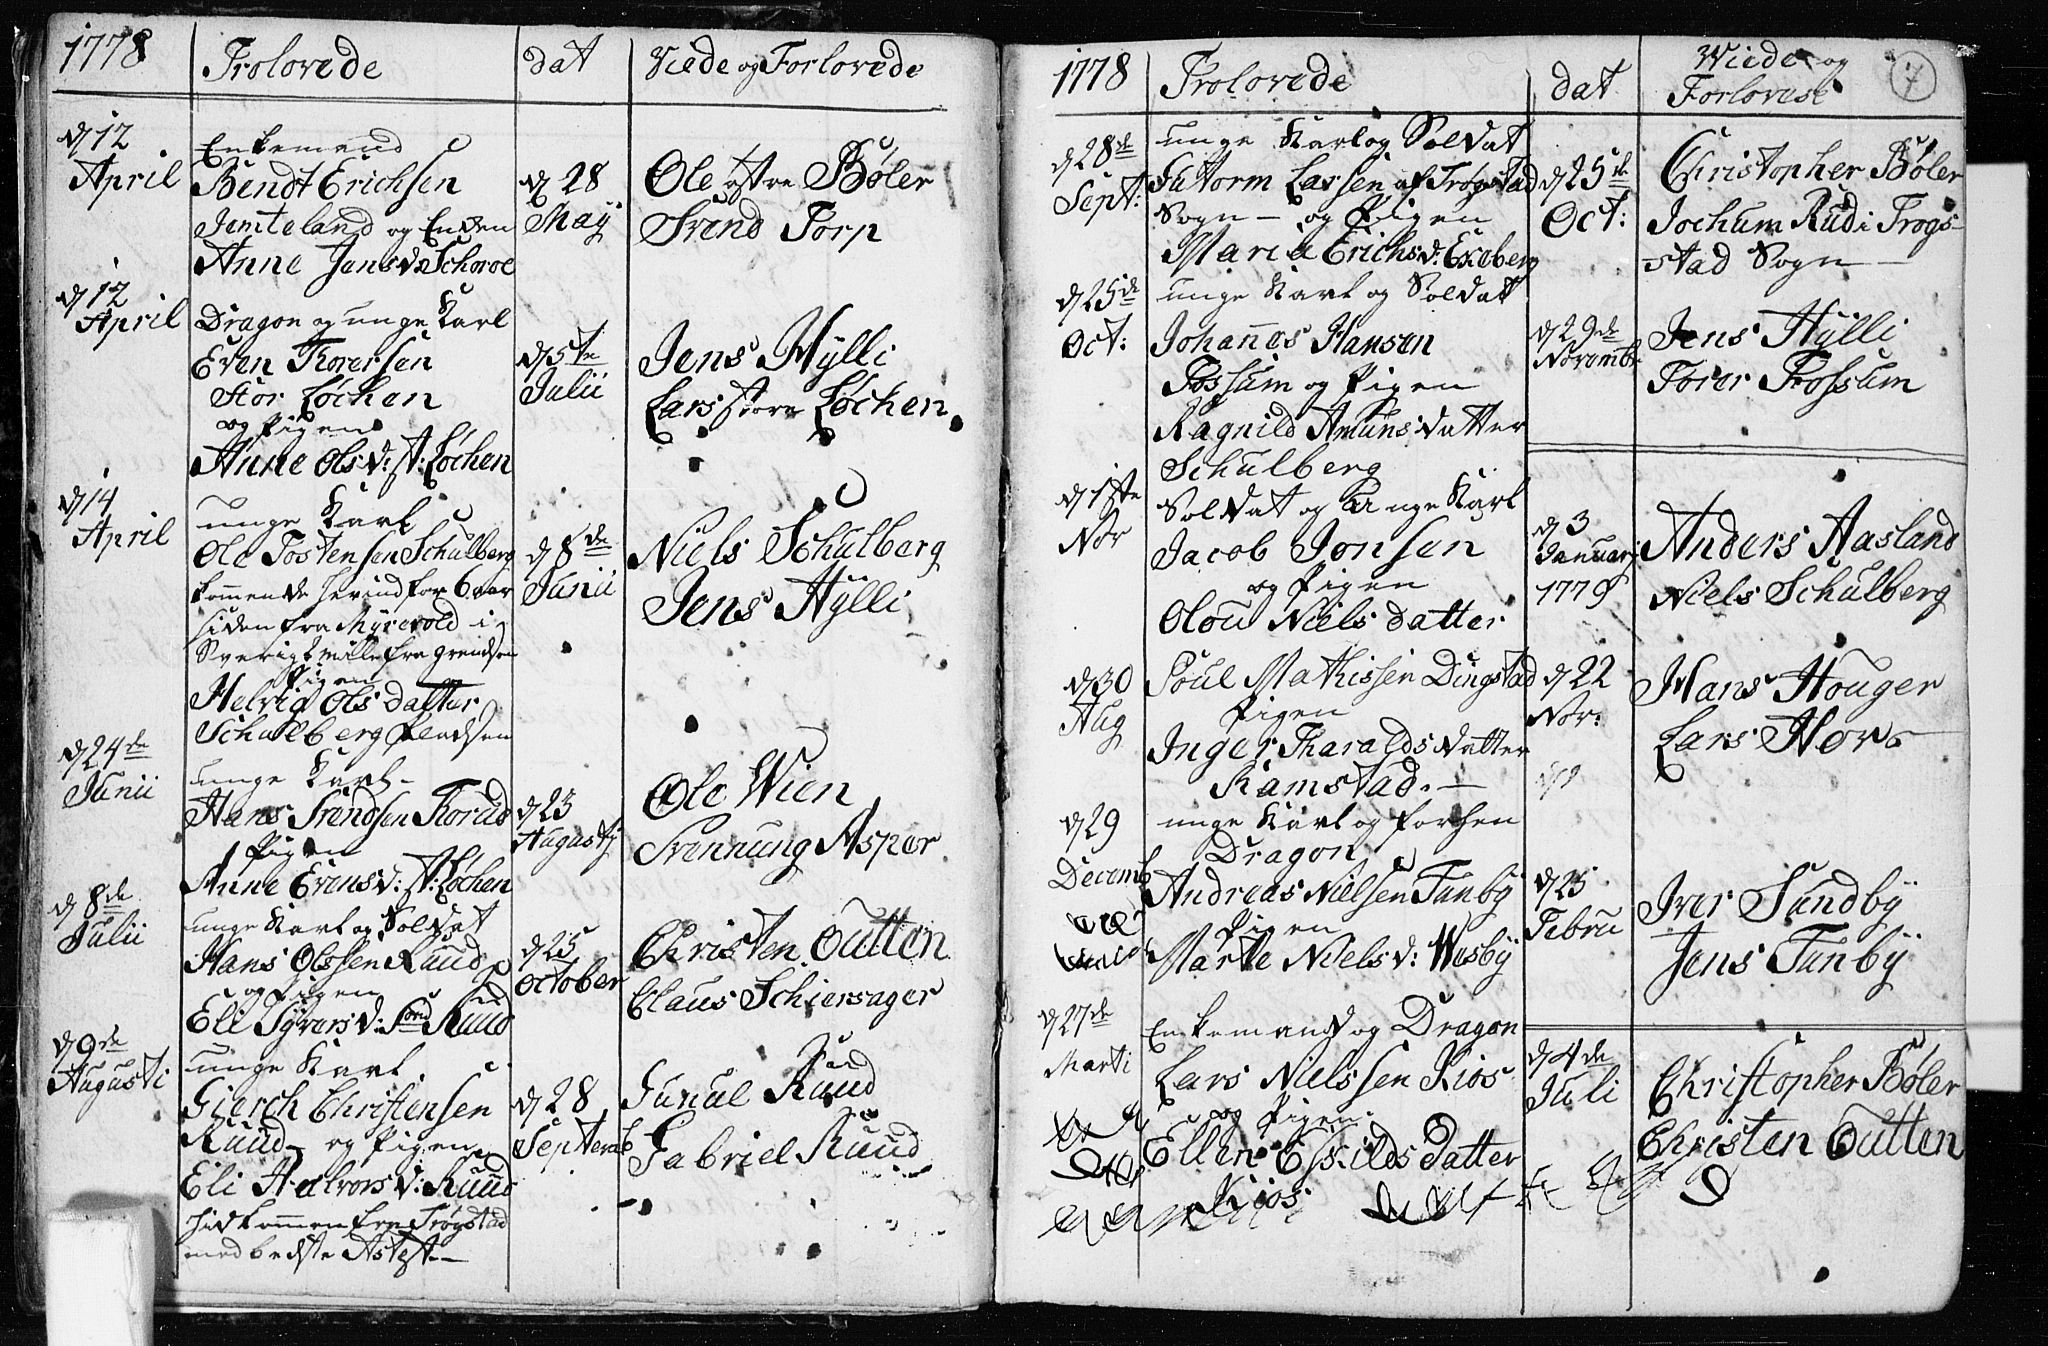 1778
Trolovede
dat
Viede og Forlovede
d 12
April
Enkemand
Bendt Erichsen
Jemteland og Enken
Anne Jensd: Schoroe
d 28
Maij
Ole østre Bøler
Svend Torp
d 12
April
Dragon og unge Karl
Even Thoresen
Stor Løchen
og Pigen
Anne Olsd: St: Løchen
d 5te
Julii
Jens Hylli
Lars store Løchen
d 14
April
unge Karl
Ole Tostensen Schulberg
kommende herind for 6 aar
siden fra Myrevold i
Sverig 1 Mille fra Grendsen
Pigen
Helvig Olsdatter
Schulberg Pladsen
d 8de
Junii
Niels Schulberg
Jens Hÿlli
d 24de
Junii
unge Karl
Hans Svendsen Thorud
Pigen
Anne Evensd: St: Løchen
d 23
Augustj
Ole Wien
Svennung Asper
d 8de
Julii
unge Karl og Soldat
Hans Olssen Ruud
og Pigen
Eli Syversd: Ruud
d 25
October
Christen Outten
Claus Schiersager
d 9de
Augusti
unge Karl
Gierch Christensen
Ruud og Pigen
Eli Halvorsd: Ruud
hidkommen fra Trøgstad
med bedste Attest
d 28
Septemb
Gunul Ruud
Gabriel Ruud
1778
Trolovede
dat
Wiede og
Forlovese
7
d 28de
Sept:
unge Karl og Soldat
Guttorm Larsen af Trøgstad
Sogn og Pigen
Maria Erichsd: Exeberg
d 25de
Oct:
Christopher Bøler
Jochum Rud i Trøgs-
stad Sogn
d 25de
Oct:
unge Karl og Soldat
Johannes Hansen
Fossum og Pigen
Ragnild Amunsdatter
Schulberg
d 29de
Novembr
Jens Hÿlli
Torer Fossum
d 1ste
Nov
Soldat og unge Karl
Jacob Jonsen
og Pigen
Olou Nielsdatter
d 3
Januarj
1779
Anders Aasland
Niels Schulberg
d 30
Aug
Poul Mathissen Dingstad
Pigen
Inger Tharaldsdatter
Ramstad.
d 22
Nov:
Hans Houger
Lars Hov
d 29
Decemb
unge Karl og forhen
Dragon
Andreas Nielsen Tunby
Pigen
Marte Nielsd: Wesbÿ
d 25
Febru
Iver Sundbÿ
Jens Tunbÿ
d 27de
Marti
Enkemand og Dragon
Lars Nielssen Kios
og Pigen
Ellen Eskildsdatter
Kios
d 4de
Juli
Christopher Bøler
Christen Outten